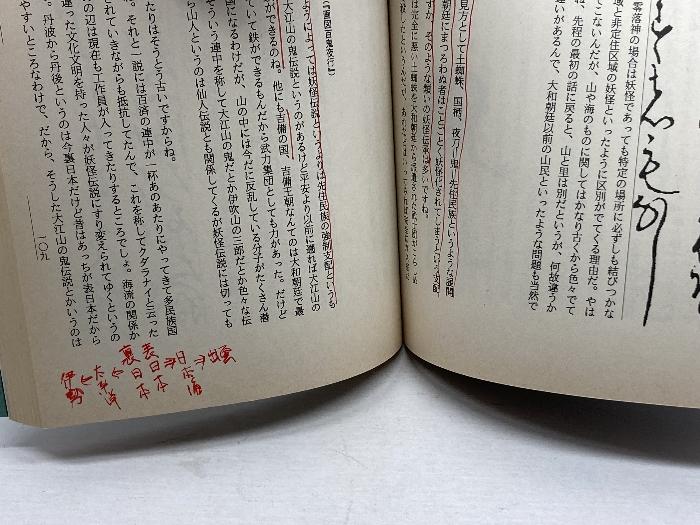 零落神の場合は妖怪であっても特定の場所に必ずしも結びつかな
域と非定住区域の妖怪といったように区別がでてくる理由だ。やは
てこないんだが、山や海のものに関してはかなり古くから色々でて
ね、先程の最初の話に戻ると、山と里は別だというが、何故違うか
違いがあるんで、大和朝廷以前の山民といったような問題も当然で
見方として土蜘蛛、国栖、夜刀＝鬼＝先住民族というような
すか、そのような類いの妖怪伝承は多いですね。
『画図百鬼夜行』
ようによっては妖怪伝説というよりは先住民族の強制支配というも
大江山の鬼伝説というのがあるけど平安より以前に遡れば大江山の
ができるのね。他にも吉備の国、吉備王朝なんてのは大和朝廷で最
ていて鉄ができるもんだから武力集団としても力があった。だけど
国になるわけだが、山の中には今だに反乱している分子がたくさん潜
そういう連中を称して大江山の鬼だとか伊吹山の三郎だとか色々な伝
ら山人というのは仙人伝説とも関係してくるが妖怪伝説には切っても
たりはそうとう古いですからね。
。それと一説には百済の連中が一杯あのあたりにやってきて多民族国
されていきながらも抵抗してたんで、これを称してクダラナイと云った
の辺は現在も工作員が入ってきたりするところでしょ。海流の関係か
違った文化文明を持った人々が妖怪伝説にすり変えられてゆくというの
。丹波から丹後というのは今裏日本だけど昔はあっちが表日本だから
やすいところなわけで、だから、そうした大江山の鬼伝説とかいうのは
一〇九
出雲
日本海
表日本
裏日本
伊勢